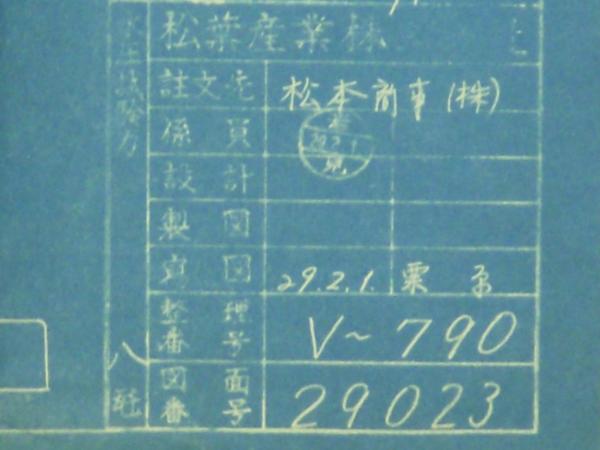 松葉産業株
註文先 松本商事(株)
係員
設計
製図
寫図 29.2.1. 栗原
整理番号 V~790
図面番号 29023
八